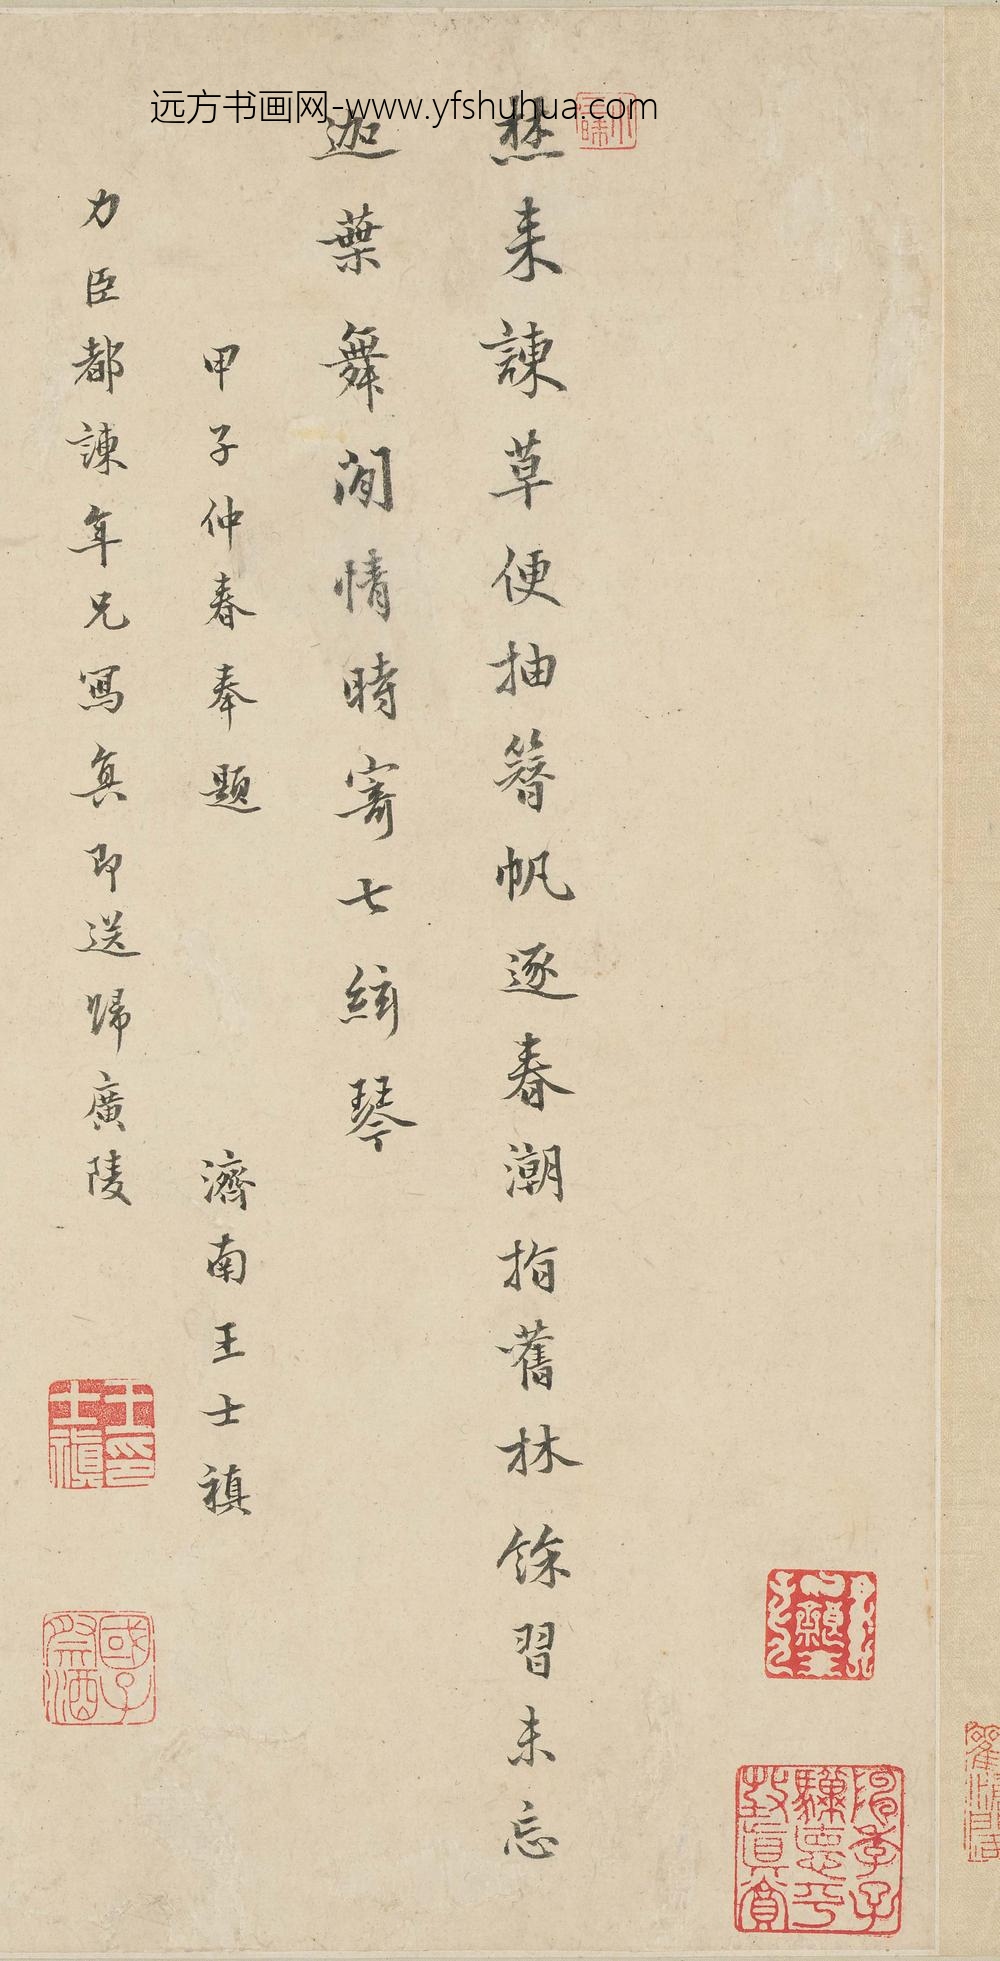 远方书画网-www.yfshuhua.com
焚来諌草便抽簪帆逐春潮指舊林餘習未忘
迦葉舞閒情時寄七絃琴
甲子仲春奉題
濟南王士禛
力臣都諌年兄寫真即送歸廣陵
王士禛印
國子祭酒